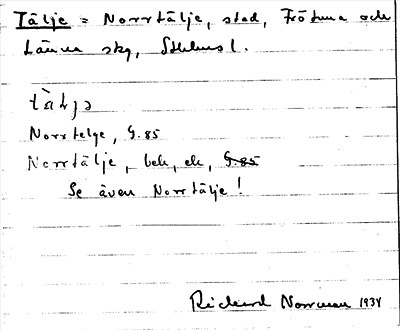 Tälje = Norrtälje, stad, Frötuna och
Länna skg, Sthlms l.
tàljə
Norrtelge, G. 85
Norrtälje, bek, ek, G. 85
Se även Norrtälje!
Rickard Norrman 1934